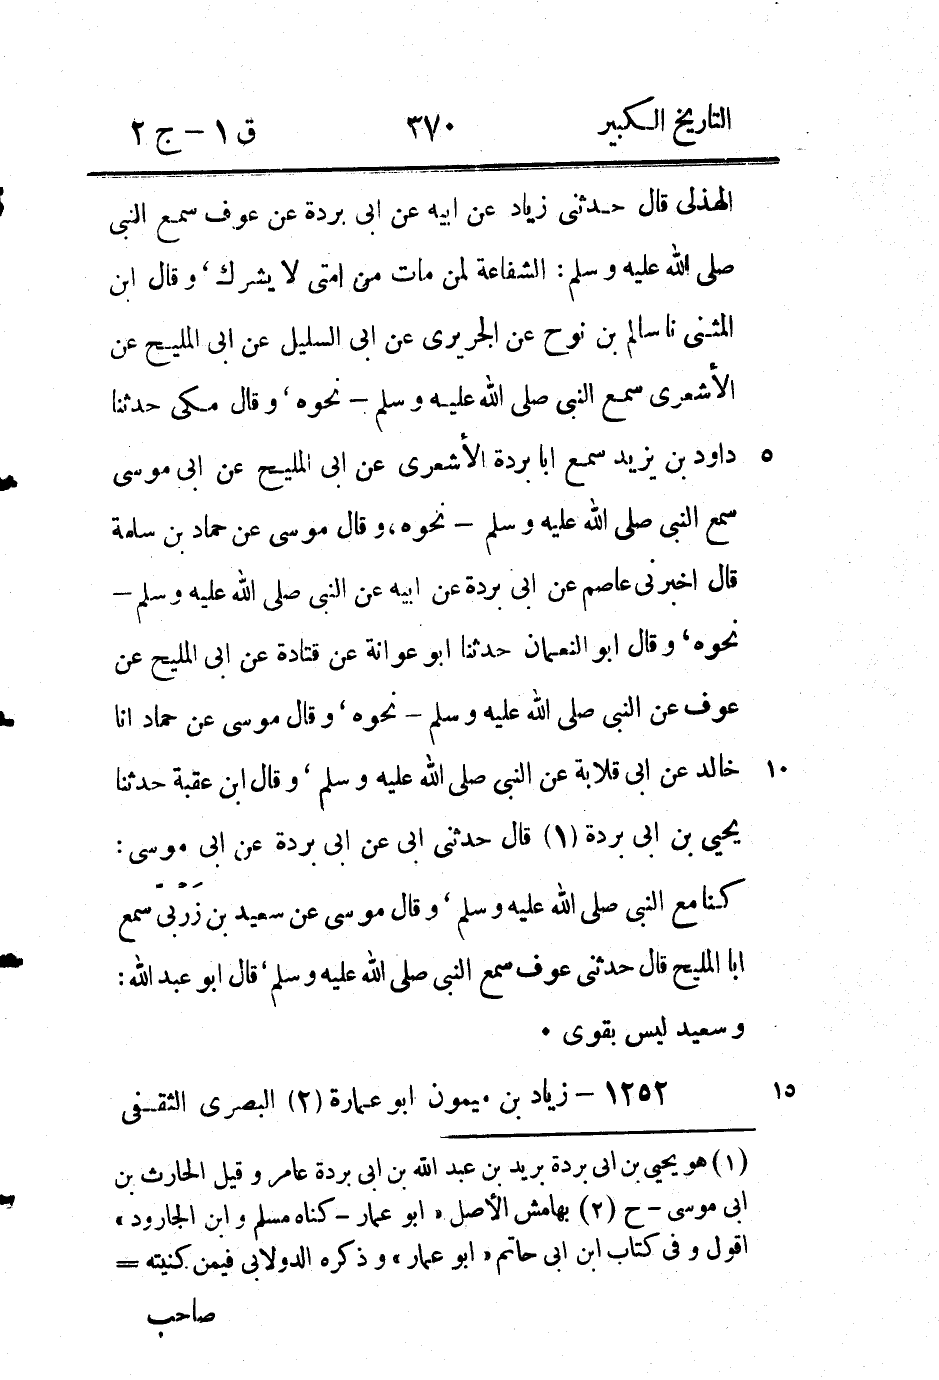 التاريخ الكبير ٣٧٠ ق ١ - ج ٢
الهذلى قال حدثنى زياد عن ابيه عن ابى بردة عن عوف سمع النبى
صلى الله عليه و سلم : الشفاعة لمن مات من امتى لا يشرك ، و قال ابن
المثنى نا سالم بن نوح عن الجريرى عن ابى السليل عن ابى المليح عن
الأشعرى سمع النبى صلى الله عليه و سلم - نحوه ، و قال مكى حدثنا
٥ داود بن يزيد سمع ابا بردة الأشعرى عن ابى المليح عن ابى موسى
سمع النبى صلى الله عليه و سلم - نحوه ، و قال موسى عن حماد بن سلمة
قال اخبرنى عاصم عن ابى بردة عن ابيه عن النبى صلى الله عليه و سلم -
نحوه ، و قال ابو النعمان حدثنا ابو عوانة عن قتادة عن ابى المليح عن
عوف عن النبى صلى الله عليه و سلم - نحوه ، و قال موسى عن حماد انا
١٠ خالد عن ابى قلابة عن النبى صلى الله عليه و سلم ، و قال ابن عقبة حدثنا
يحيى بن ابى بردة (١) قال حدثنى ابى عن ابى بردة عن ابى موسى :
كنا مع النبى صلى الله عليه و سلم ، و قال موسى عن سعيد بن زَرْبىّ سمع
ابا المليح قال حدثنى عوف سمع النبى صلى الله عليه و سلم ، قال ابو عبد الله :
و سعيد ليس بقوى ٠
١٥ ١٢٥٢ - زياد بن ميمون ابو عمارة (٢) البصرى الثقفى
(١) هو يحيى بن ابى بردة بريد بن عبد الله بن ابى بردة عامر و قيل الحارث بن
ابى موسى - ح (٢) بهامش الأصل « ابو عمار - كناه مسلم و ابن الجارود »
اقول و فى كتاب ابن ابى حاتم « ابو عمار » و ذكره الدولابى فيمن كنيته =
صاحب